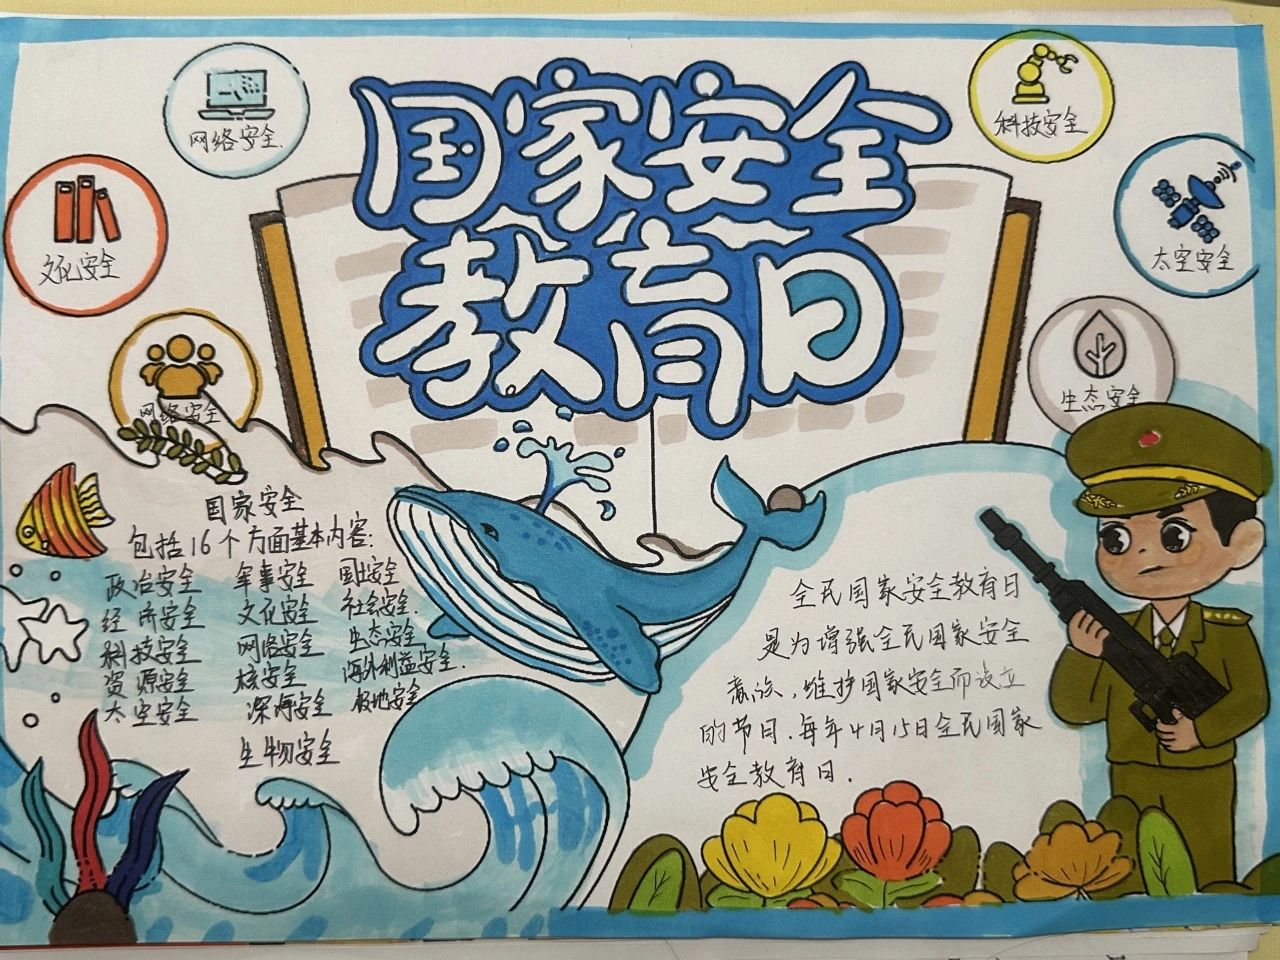 国家安全
教育日
网络安全.
科技安全
文化安全
太空安全
网络安全
生态安全
国家安全
包括16个方面基本内容:
政治安全 军事安全 国土安全
经济安全 文化安全 社会安全.
科技安全 网络安全 生态安全
资源安全 核安全 海外利益安全.
太空安全 深海安全 极地安全
生物安全
全民国家安全教育日
是为增强全民国家安全
意识,维护国家安全而设立
的节日.每年4月15日全民国家
安全教育日.